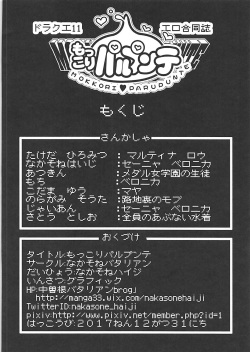 ドラクエ11
エロ合同誌
もっこりパルプンテ
MOKKORI PARUPUNTE
もくじ
さんかしゃ
たけだ ひろみつ : マルティナ ロウ
なかそねはいじ : セーニャ ベロニカ
あつきん : メダル女学園の生徒
もち : ベロニカ
こだま ゆう : マヤ
のらがみ そうた : 路地裏のモブ
じゃいあん : セーニャ ベロニカ
さとう としお : 全員のあぶない水着
おくづけ
タイトル:もっこりパルプンテ
サークル:なかそねバタリアン
だいひょう:なかそねハイジ
いんさつ:グラフィック
HP:中曽根バタリアンbrogj
http://manga33.wix.com/nakasonehaiji
TwitterID:nakasone_haiji
pixiv:http://www.pixiv.net/member.php?id=1
はっこうび:2017ねん12がつ31にち